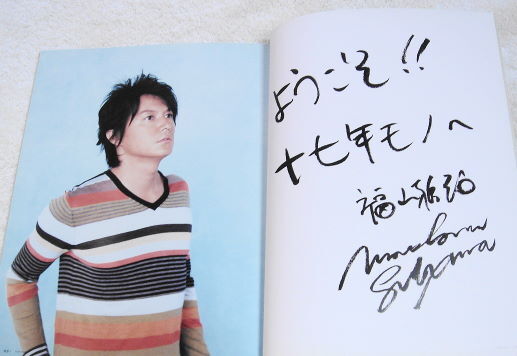 ようこそ!!
十七年モノへ
福山雅治